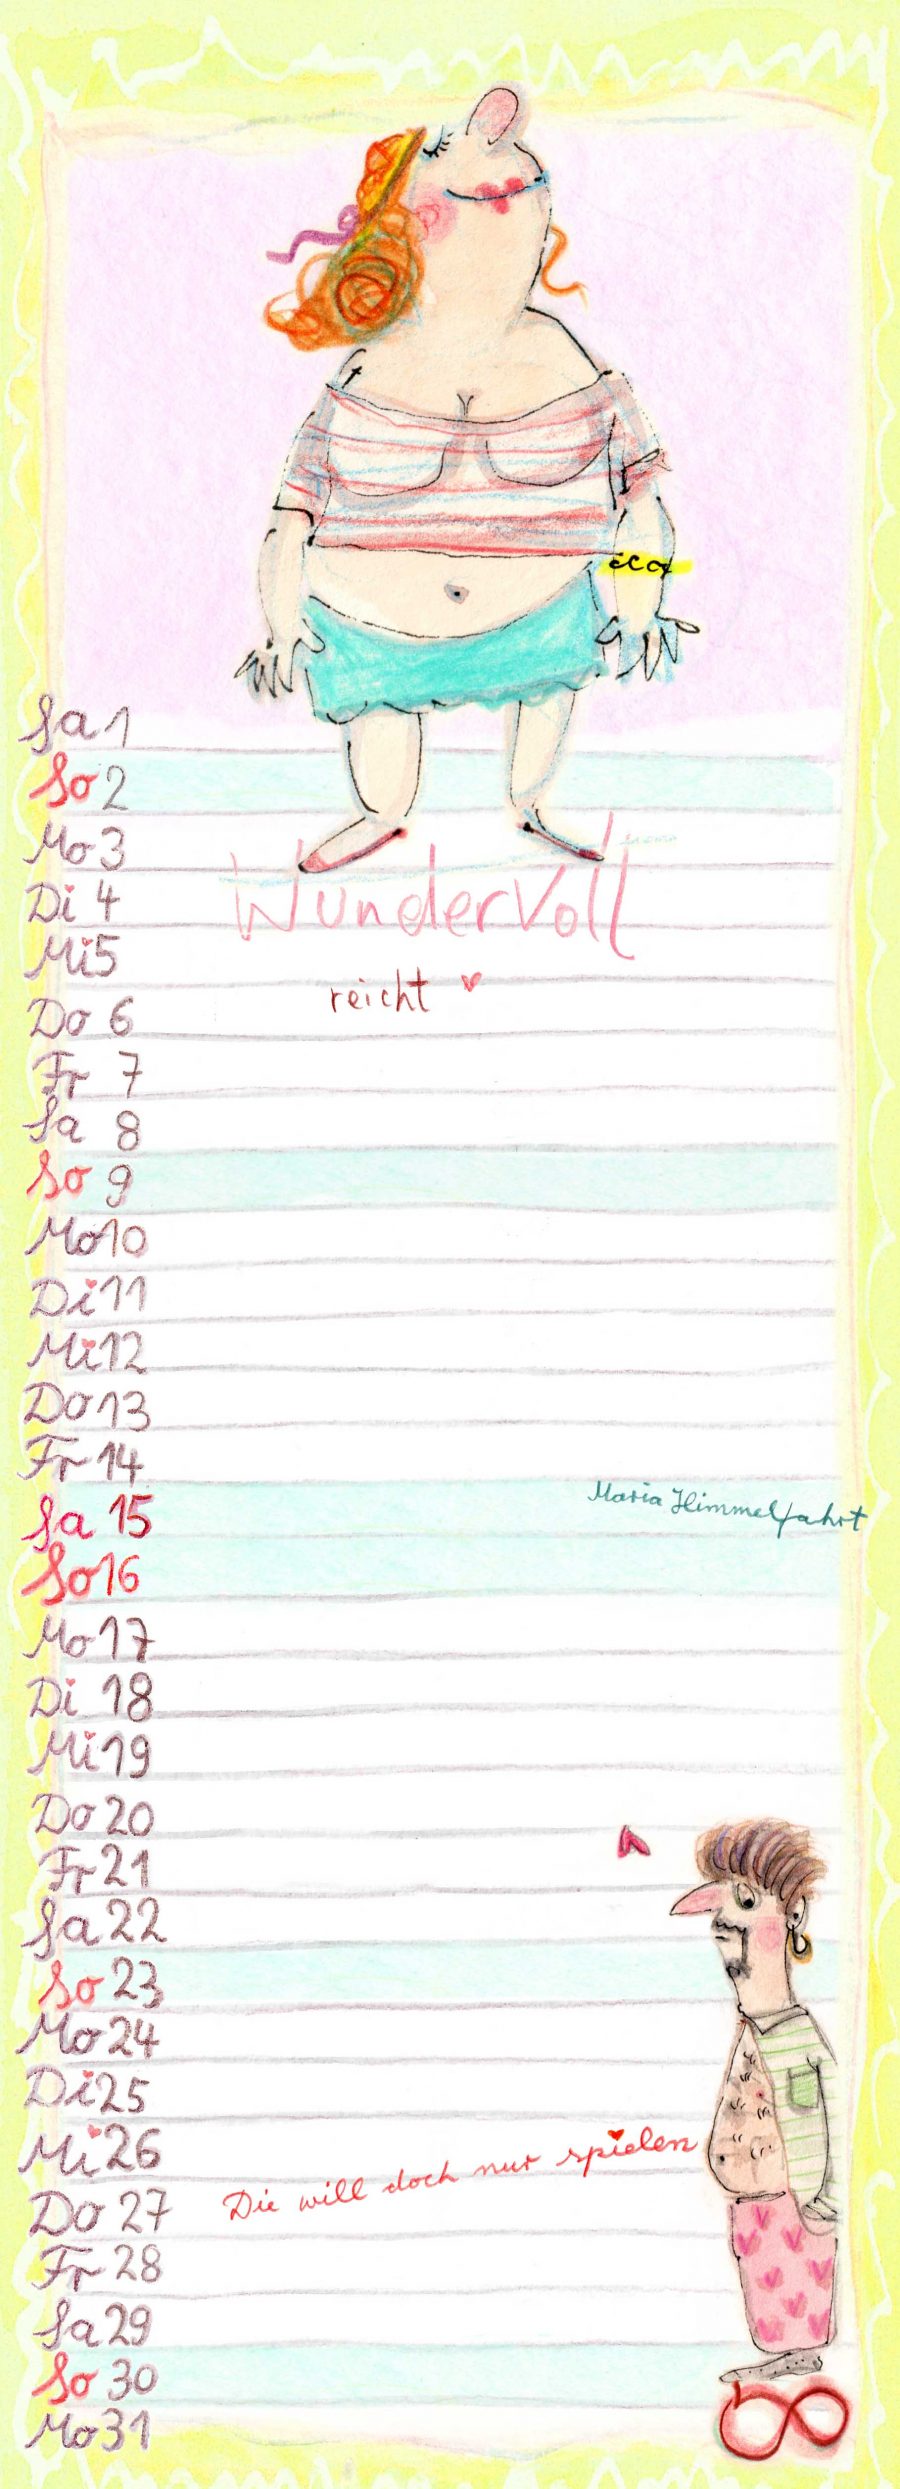 eca
Sa 1
So 2
Mo 3
Wundervoll
Di 4
Mi 5
reicht
Do 6
Fr 7
Sa 8
So 9
Mo 10
Di 11
Mi 12
Do 13
Fr 14
Sa 15 Maria Himmelfahrt
So 16
Mo 17
Di 18
Mi 19
Do 20
Fr 21
Sa 22
So 23
Mo 24
Di 25
Mi 26
Die will doch nur spielen
Do 27
Fr 28
Sa 29
So 30
Mo 31
8